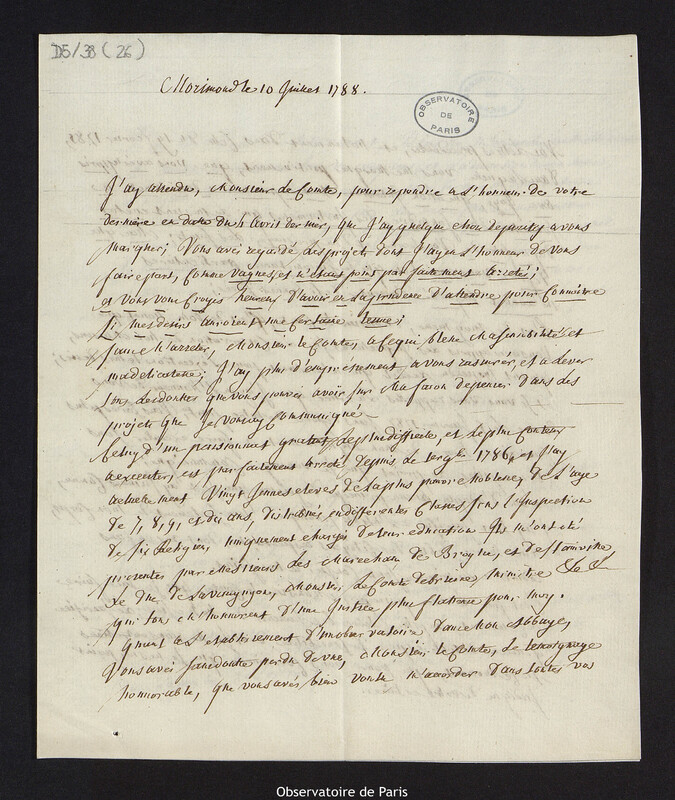 D5/38 (26)
Morimond le 10 Juillet 1788.
OBSERVATOIRE
DE
PARIS
J'ay attendu, Monsieur Le Comte, pour repondre a L'honneur de votre
derniere en datte du 4 avril dernier, que J'ay quelque chose de positif a vous
marquer; Vous avez regardé des projets dont J'ay eu L'honneur de vous
faire part, comme vagues, et n'etant point parfaitement arretés;
et vous vous croyés heureux d'avoir eu La prudence d'attendre pour connoitre
si mes desirs auroient une certaine tenue;
sans M'arreter, Monsieur Le Comte, a ce qui blesse Ma sensibilité et
ma delicatesse; J'ay plus d'empressement a vous rassurer, et a Lever
tous les doutes que vous pouviés avoir sur Ma façon de penser dans des
projets que Je vous ay communiqué
Celuy d'un pensionnat gratuit Le plus difficile, et Le plus couteux
a executer, est parfaitement arreté depuis Le 1786, et J'ay
actuellement Vingt Jeunes eleves de La plus pauvre Noblesse de L'age
de 7, 8, 9, et dix ans, distribués en differentes Classes sous L'inspection
de six Religieux uniquement chargés de Leur education Ils m'ont eté
presentés par Messieurs Les Marechaux de Broglie, et de Stainville
Le Duc de La Vauguyon, Monsieur Le Comte de Brienne Ministre &c &c
qui tous M'honnorent d'une Justice plus flatteuse pour Moy.
Quant a L'etablissement d'un observatoire dans Mon Abbaye,
Vous avés sans doute perdu de vue, Monsieur Le Comte, Le temoignage
honnorable, que vous avés bien voulu M'accorder dans toutes vos
Observatoire de Paris